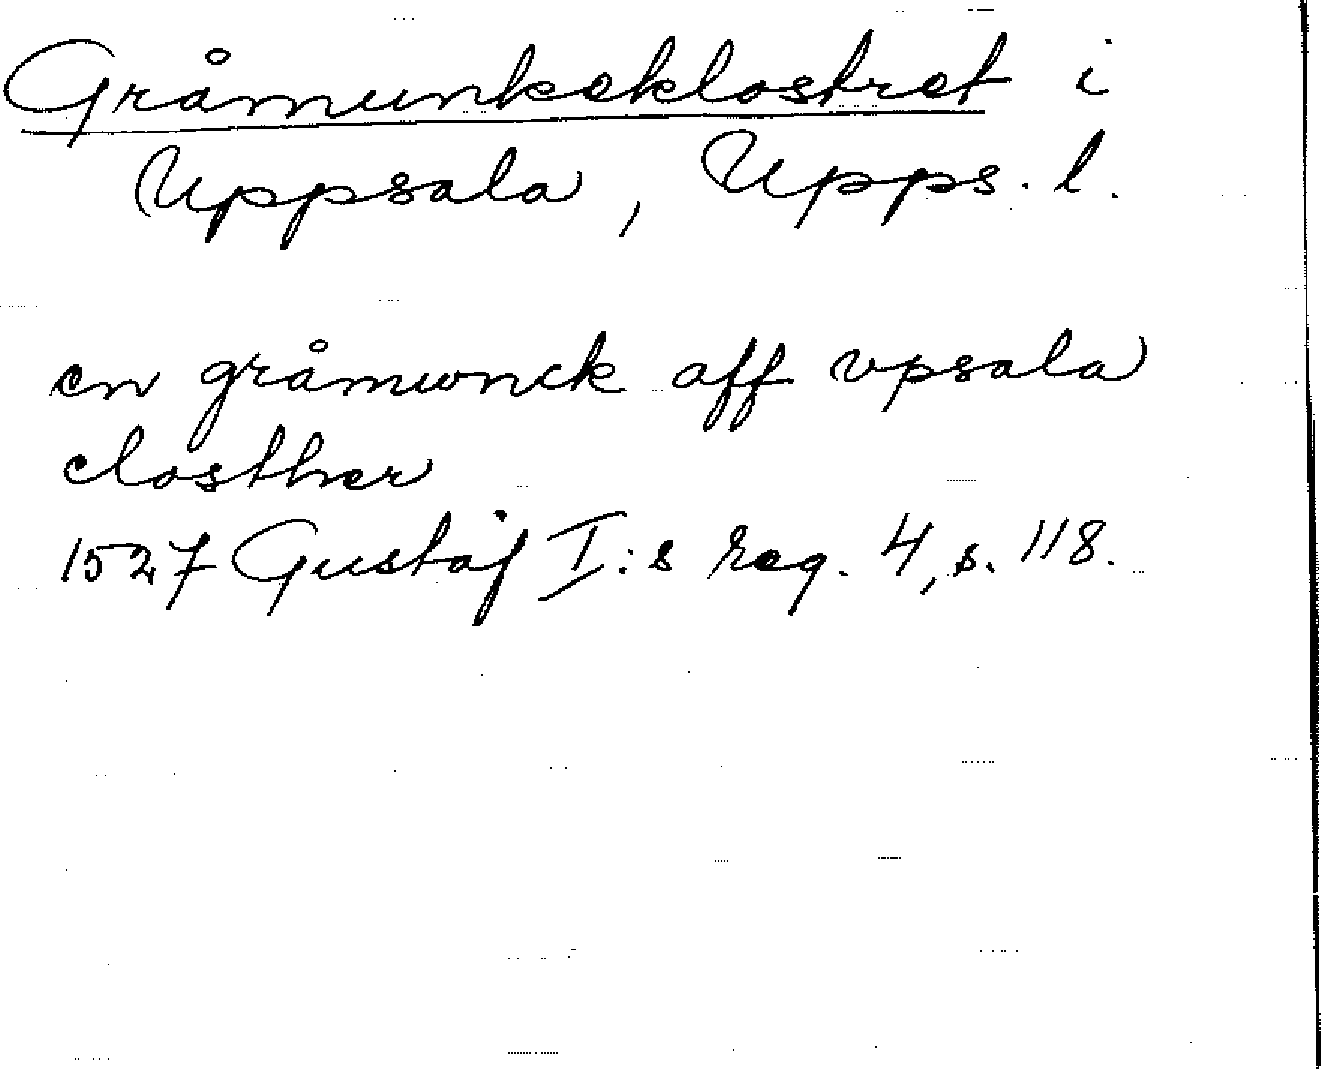 Gråmunkeklostret i
Uppsala, Upps. l.
en gråmwnck aff vpsala
closther
1527 Gustaf I:s reg. 4, s. 118.